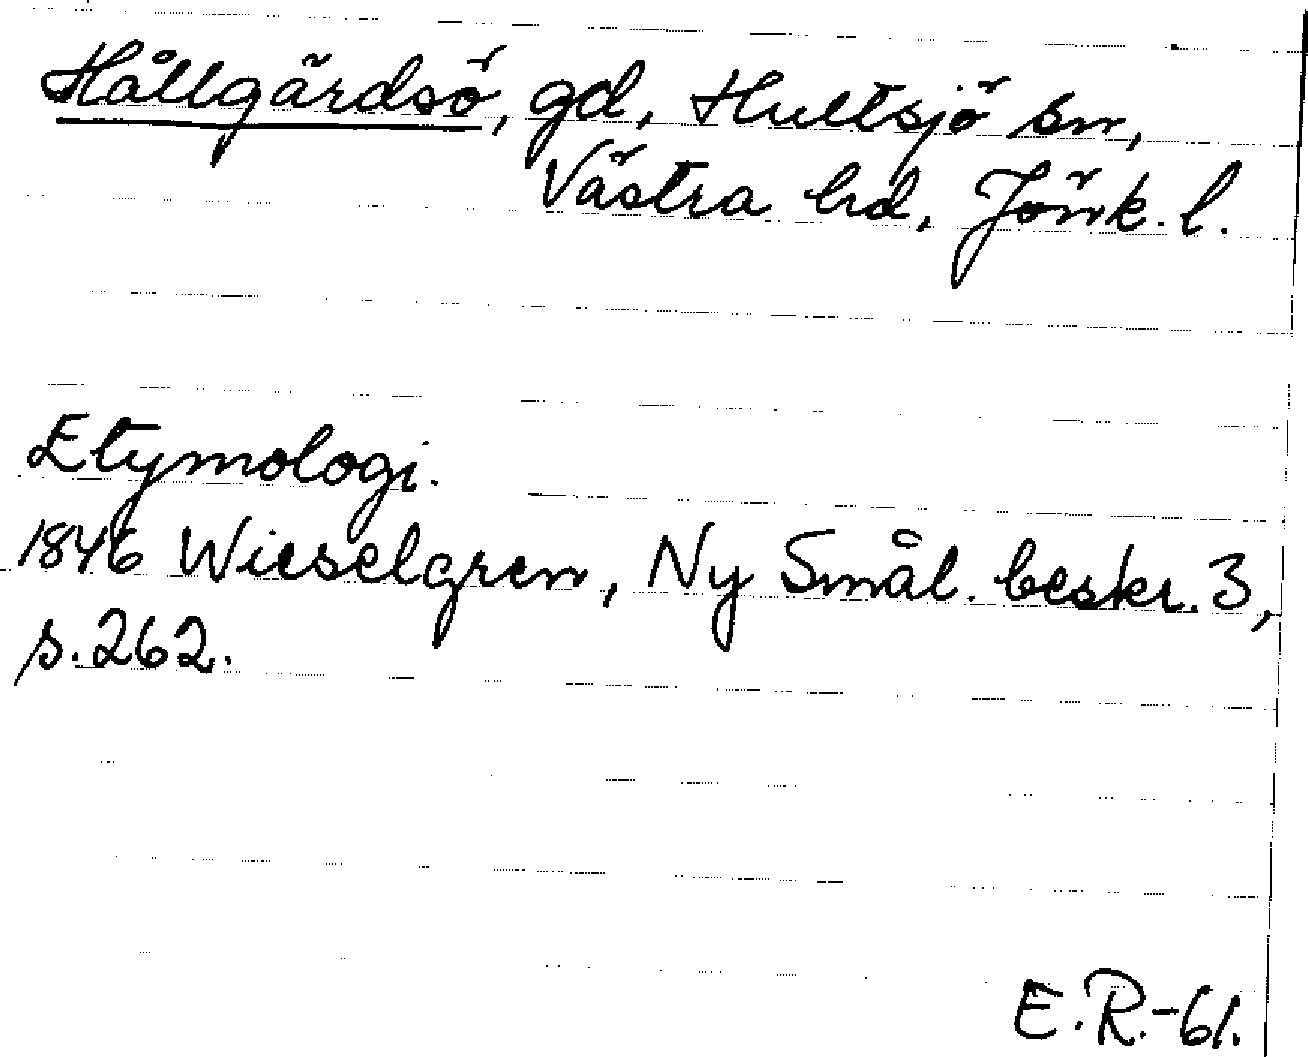 Hållgärdsö, gd, Hultsjö sn,
Västra hd, Jönk. l.
Etymologi.
1846 Wieselgren, Ny Smål. beskr. 3,
s. 262.
E.R.-61.